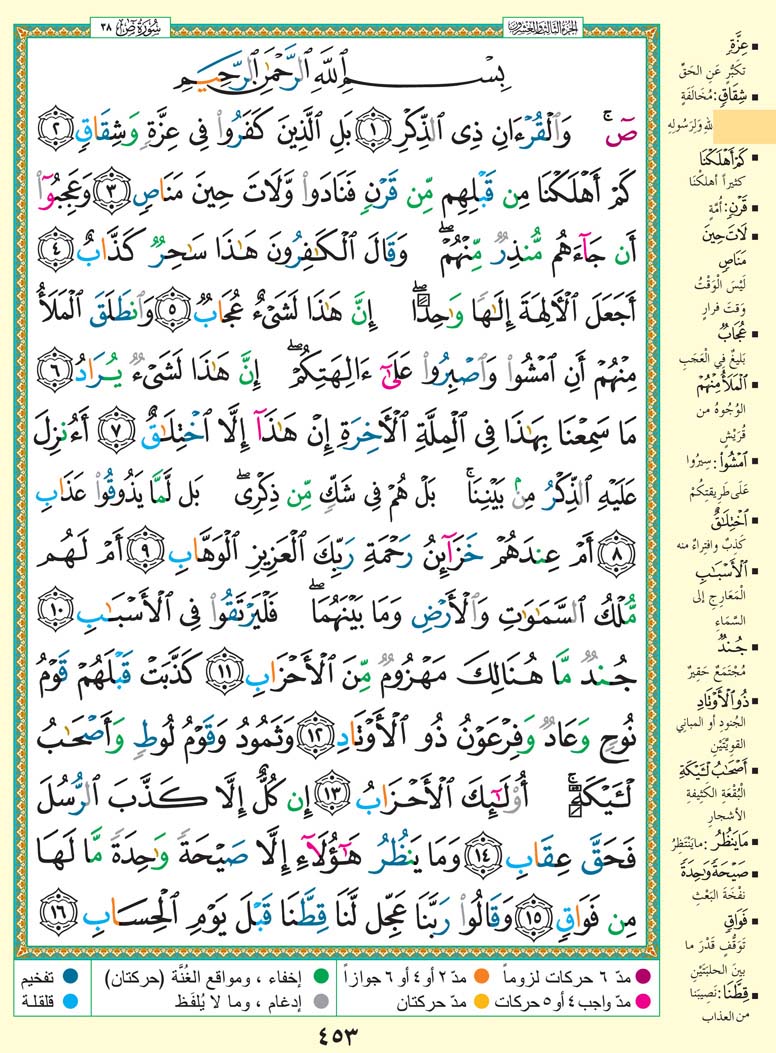 سُورَةُ صٓ ٣٨
الجُزءُ الثالِثُ وَالعِشرُون
بِسۡمِ ٱللَّهِ ٱلرَّحۡمَٰنِ ٱلرَّحِيمِ
صٓۚ وَٱلۡقُرۡءَانِ ذِي ٱلذِّكۡرِ ١ بَلِ ٱلَّذِينَ كَفَرُواْ فِي عِزَّةٖ وَشِقَاقٖ ٢
كَمۡ أَهۡلَكۡنَا مِن قَبۡلِهِم مِّن قَرۡنٖ فَنَادَواْ وَّلَاتَ حِينَ مَنَاصٖ ٣ وَعَجِبُوٓاْ
أَن جَآءَهُم مُّنذِرٞ مِّنۡهُمۡۖ وَقَالَ ٱلۡكَٰفِرُونَ هَٰذَا سَٰحِرٞ كَذَّابٌ ٤
أَجَعَلَ ٱلۡأٓلِهَةَ إِلَٰهٗا وَٰحِدًاۖ إِنَّ هَٰذَا لَشَيۡءٌ عُجَابٞ ٥ وَٱنطَلَقَ ٱلۡمَلَأُ
مِنۡهُمۡ أَنِ ٱمۡشُواْ وَٱصۡبِرُواْ عَلَىٰٓ ءَالِهَتِكُمۡۖ إِنَّ هَٰذَا لَشَيۡءٞ يُرَادُ ٦
مَا سَمِعۡنَا بِهَٰذَا فِي ٱلۡمِلَّةِ ٱلۡأٓخِرَةِ إِنۡ هَٰذَآ إِلَّا ٱخۡتِلَٰقٌ ٧ أَءُنزِلَ
عَلَيۡهِ ٱلذِّكۡرُ مِنۢ بَيۡنِنَاۚ بَلۡ هُمۡ فِي شَكّٖ مِّن ذِكۡرِيۚ بَل لَّمَّا يَذُوقُواْ عَذَابِ
٨ أَمۡ عِندَهُمۡ خَزَآئِنُ رَحۡمَةِ رَبِّكَ ٱلۡعَزِيزِ ٱلۡوَهَّابِ ٩ أَمۡ لَهُم
مُّلۡكُ ٱلسَّمَٰوَٰتِ وَٱلۡأَرۡضِ وَمَا بَيۡنَهُمَاۖ فَلۡيَرۡتَقُواْ فِي ٱلۡأَسۡبَٰبِ ١٠
جُندٞ مَّا هُنَالِكَ مَهۡزُومٞ مِّنَ ٱلۡأَحۡزَابِ ١١ كَذَّبَتۡ قَبۡلَهُمۡ قَوۡمُ
نُوحٖ وَعَادٞ وَفِرۡعَوۡنُ ذُو ٱلۡأَوۡتَادِ ١٢ وَثَمُودُ وَقَوۡمُ لُوطٖ وَأَصۡحَٰبُ
لۡـَٔيۡكَةِۚ أُوْلَٰٓئِكَ ٱلۡأَحۡزَابُ ١٣ إِن كُلٌّ إِلَّا كَذَّبَ ٱلرُّسُلَ
فَحَقَّ عِقَابِ ١٤ وَمَا يَنظُرُ هَٰٓؤُلَآءِ إِلَّا صَيۡحَةٗ وَٰحِدَةٗ مَّا لَهَا
مِن فَوَاقٖ ١٥ وَقَالُواْ رَبَّنَا عَجِّل لَّنَا قِطَّنَا قَبۡلَ يَوۡمِ ٱلۡحِسَابِ ١٦
عِزَّةٍ
تكَبُّرٍ عَنِ الحَقِّ
شِقَاقٍ: مُخَالَفَةٍ
للهِ وَلِرَسُولِهِ
كَمْ أَهْلَكْنَا
كثيراً أهلكْنَا
قَرْنٍ: أُمَّةٍ
لَاتَ حِينَ
مَنَاصٍ
لَيْسَ الْوَقْتُ
وَقتَ فِرارٍ
عُجَابٌ
بَلِيغٌ فِي العَجَبِ
الْمَلَأُ مِنْهُمْ
الوُجُوهُ من
قُرَيْشٍ
امْشُوا: سِيرُوا
عَلَى طَرِيقتِكُمْ
اخْتِلَاقٌ
كَذِبٌ وافتِراءٌ منه
الْأَسْبَابِ
الْمَعَارِجِ إلى
السَّمَاءِ
جُندٌ
مُجْتَمَعٌ حَقِيرٌ
ذُو الْأَوْتَادِ
الجُنودِ أو المبانِي
القَوِيَّتَيْنِ
أَصْحَابُ لْئَيْكَةِ
البُقْعَةِ الكَثِيفةِ
الأشجارِ
مَا يَنظُرُ: مايَنْتَظِرُ
صَيْحَةً وَاحِدَةً
نفْخَةَ البَعْثِ
فَوَاقٍ
تَوَقُّفٍ قَدْرَ ما
بينَ الحلبَتَيْنِ
قِطَّنَا: نَصِيبَنا
من العذاب
مدّ ٦ حركات لزوماً
مدّ ٢ أو ٤ أو ٦ جوازاً
إخفاء ، ومواقع الغُنَّة (حركتان)
تفخيم
مدّ واجب ٤ أو ٥ حركات
مدّ حركتان
إدغام ، وما لا يُلفَظ
قلقلة
٤٥٣